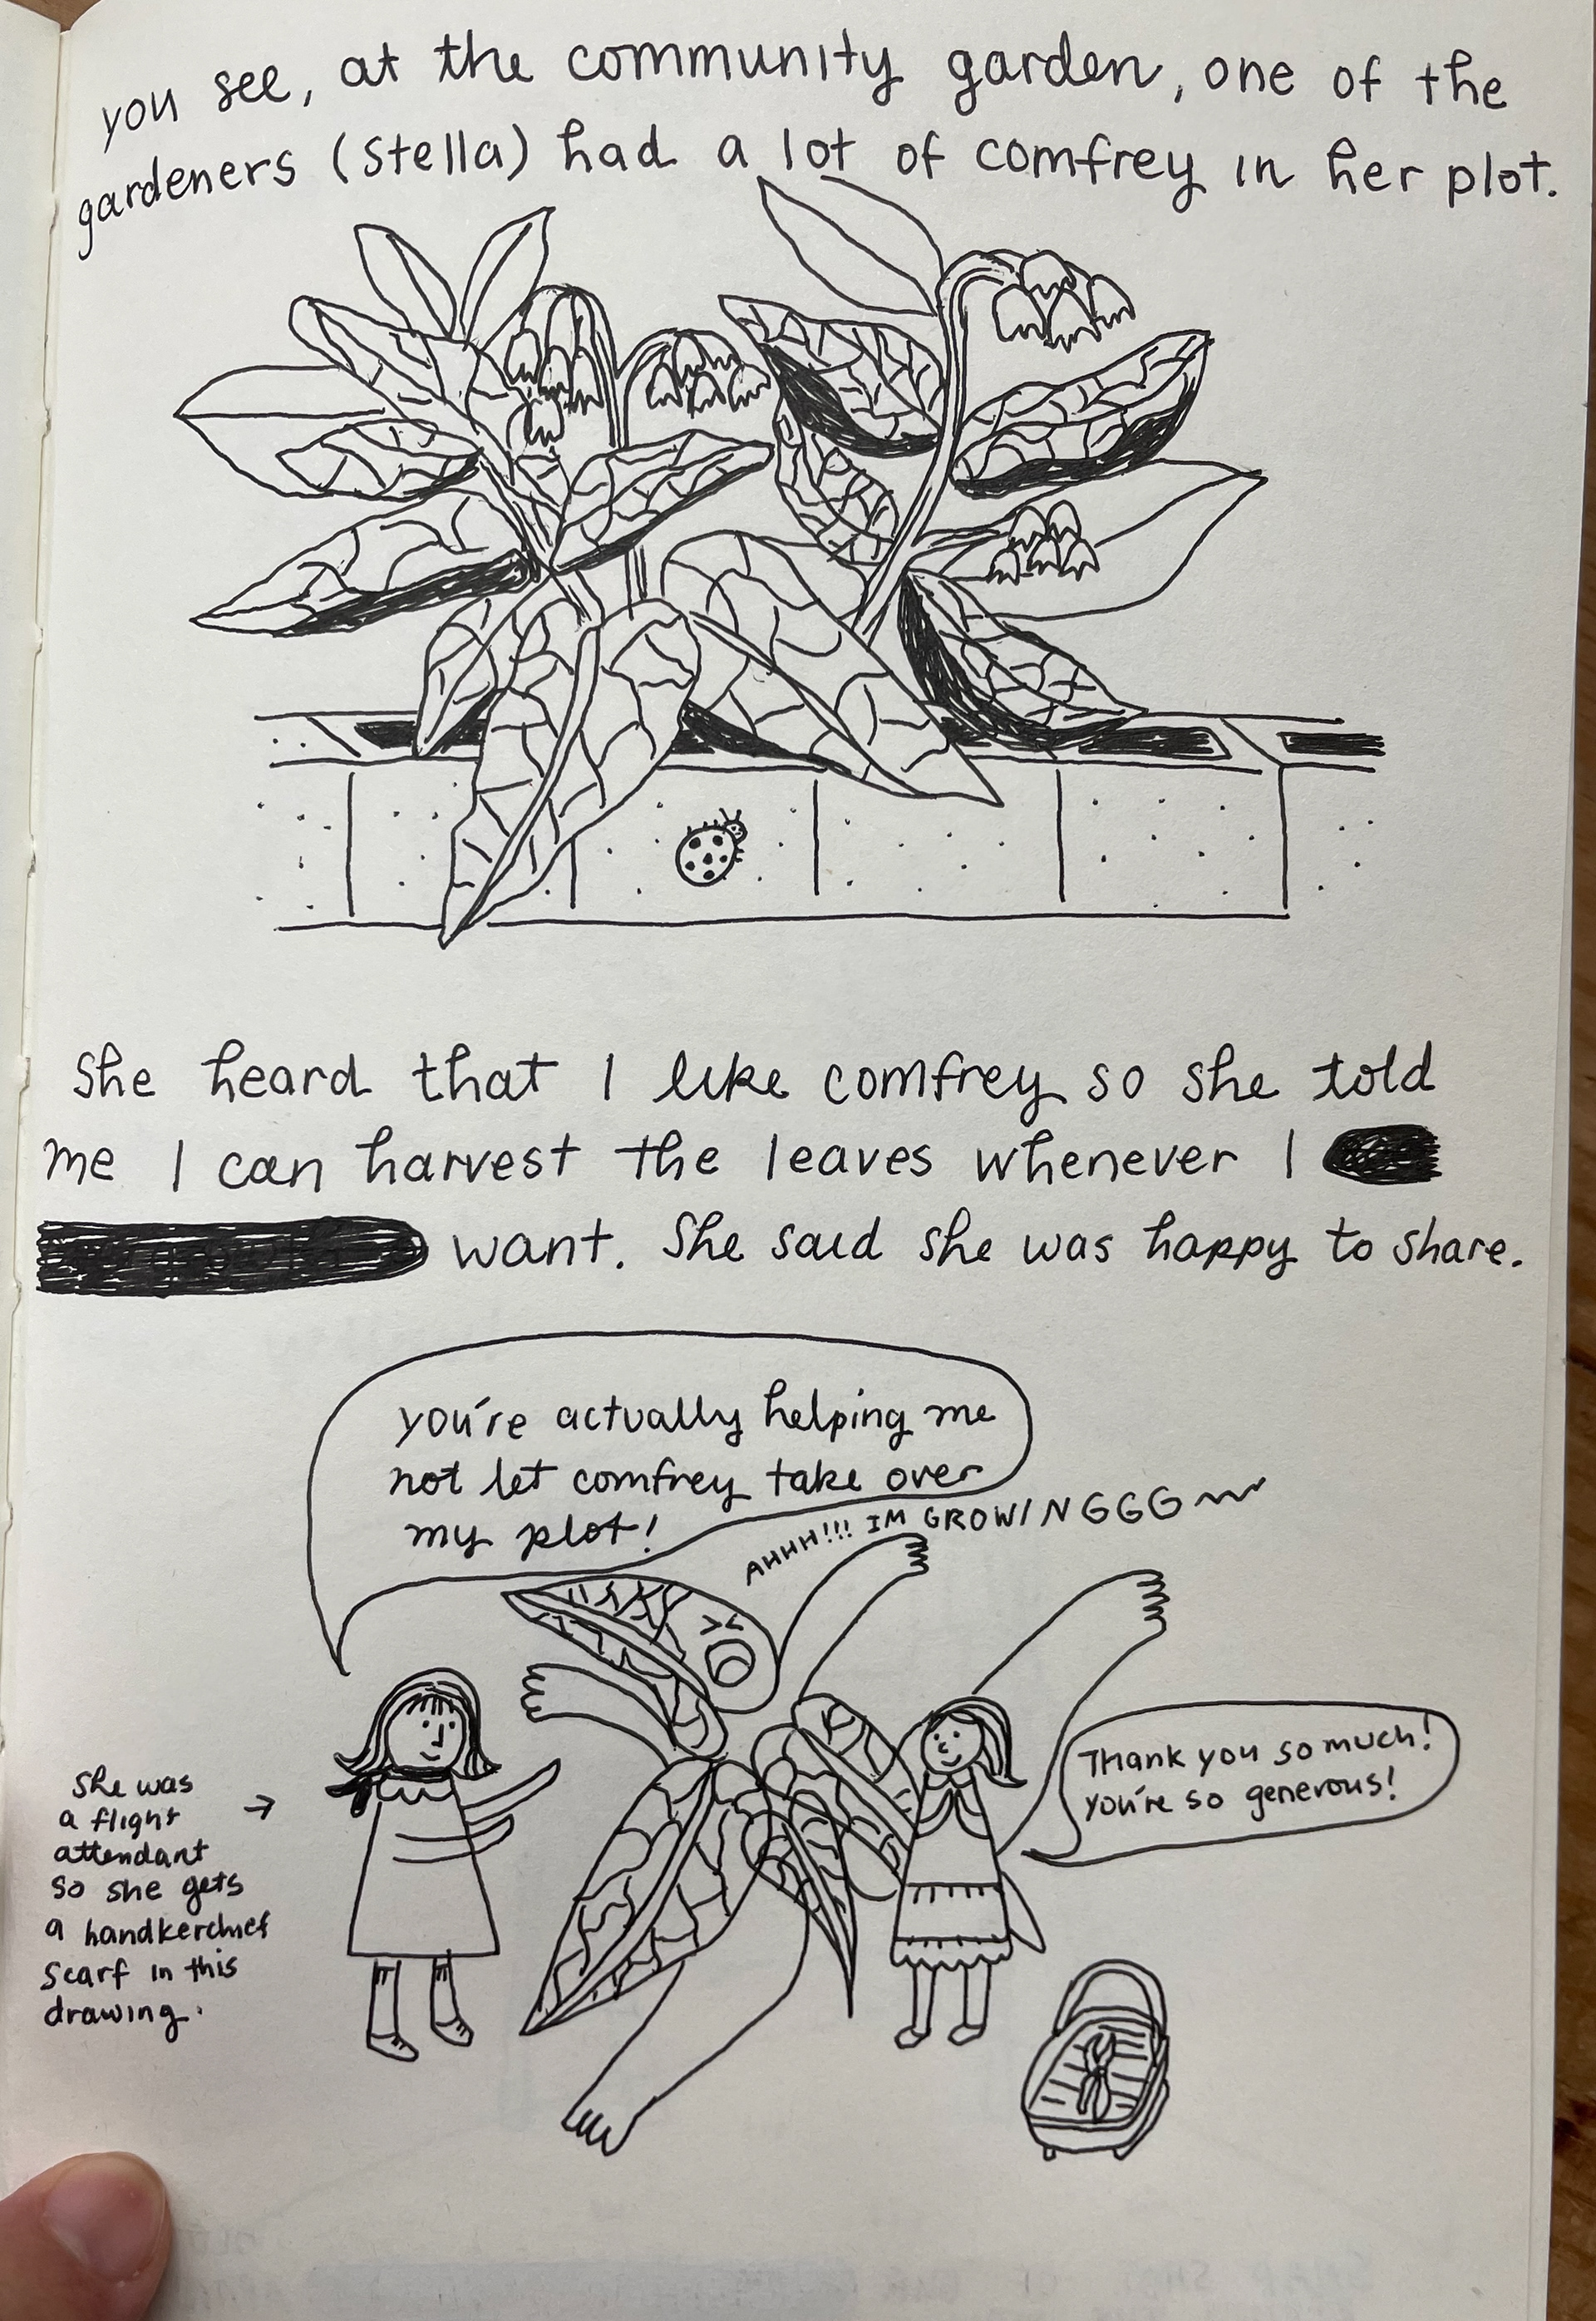 you see, at the community garden, one of the
gardeners (Stella) had a lot of comfrey in her plot.
She heard that I like comfrey so she told
me I can harvest the leaves whenever I
want. She said she was happy to share.
you're actually helping me
not let comfrey take over
my plot!
AHHH!!! IM GROWINGGG
She was
a flight
attendant
so she gets
a handkerchief
scarf in this
drawing.
Thank you so much!
you're so generous!